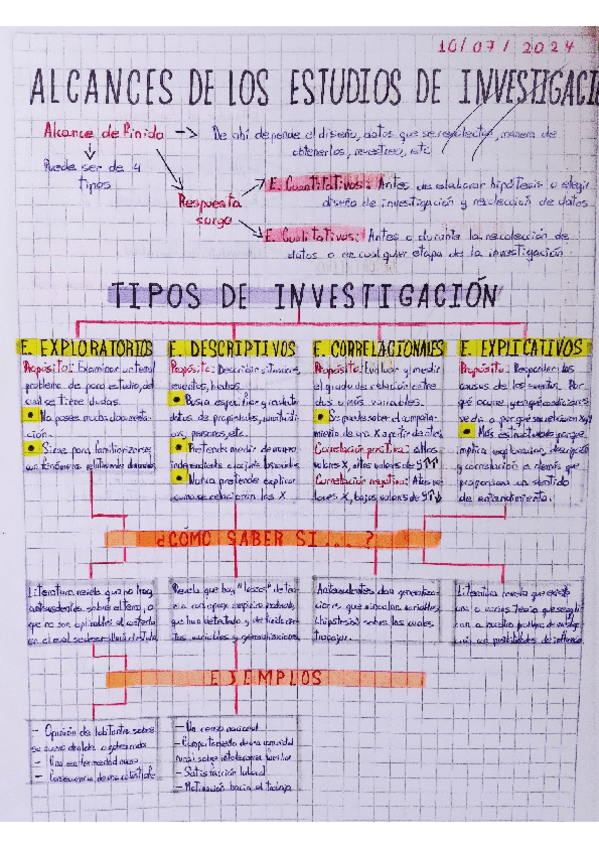 10/07/2024
ALCANCES DE LOS ESTUDIOS DE INVESTIGACI
Alcance definido -> De ahí depende el diseño, datos que se recolectan, manera de
obtenerlos, muestreo, etc
Puede ser de 4
tipos
Respuesta
surge
E. Cuantitativos: Antes de elaborar hipótesis o elegir
diseño de investigación y recolección de datos
E. Cualitativos: Antes o durante la recolección de
datos o en cualquier etapa de la investigación
TIPOS DE INVESTIGACIÓN
E. EXPLORATORIOS
Propósito: Examinar un tema/
problema de poco estudio, del
cual se tiene dudas.
No posee mucha documenta-
ción.
Sirve para familiarizarse
con fenómenos relativamente
E. DESCRIPTIVOS
Propósito: Describir situaciones,
eventos, hechos.
Busca especificar
datos de propiedades,
personas, etc.
Pretende medir de manera
independiente
Nunca pretende explicar
como se relacionan las X
E. CORRELACIONALES
Propósito: Evaluar y medir
el grado de relación entre
dos o más variables.
Se puede saber el comporta-
miento de una X a partir de otra.
Correlación positiva: altos
valores X, altos valores de Y↑↑
Correlación negativa: Altos va-
lores X, bajos valores de Y↑↓
E. EXPLICATIVOS
Propósito: Responder las
causas de los eventos. Por
qué ocurre, y en qué condiciones
se da o por qué se relacionan X y Y
Más estructurados porque
implica exploración, descripción
y correlación a demás que
proporciona un sentido
de entendimiento.
¿CÓMO SABER SI...?
Literatura revela que no hay
antecedentes sobre el tema, o
que no son aplicables al contexto
en el cual se desarrollará el estudio
Revela que hay "trozos" de teo-
ría con apoyo empírico moderado,
Antecedentes dan generaliza-
ciones que vinculan variables
(hipótesis) sobre las cuales
trabajar.
Literatura revela que existe
una o varias Teoría que se apli-
can a nuestro problema de
EJEMPLOS
- Opinión de habitantes sobre
su nuevo alcalde o gobernador
- Una enfermedad nueva
- Consecuencia de una catástrofe
- Un censo nacional
- Comportamiento de una comunidad
rural sobre
- Satisfacción laboral
- Motivación hacia el trabajo